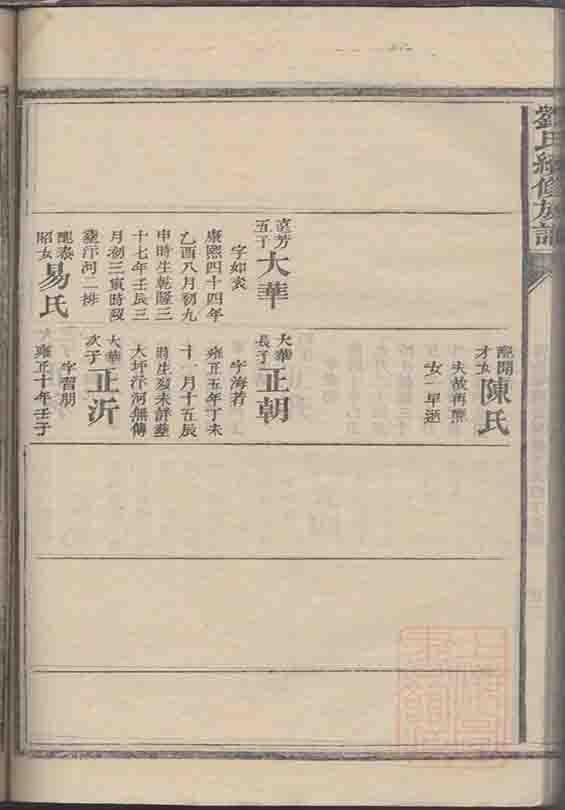 劉氏續修族譜
配開
才女
陳氏
夫故再醮
女一早逝
范芳
五子
大華
字如袁
康熙四十四年
乙酉八月初九
申時生乾隆三
十七年壬辰三
月初三寅時歿
葬汴河二排
配泰
昭女
易氏
大華
長子
正朝
字海若
雍正五年丁未
十一月十五辰
時生歿未詳葬
大坪汴河無傳
大華
次子
正沂
字習朋
雍正十年壬子